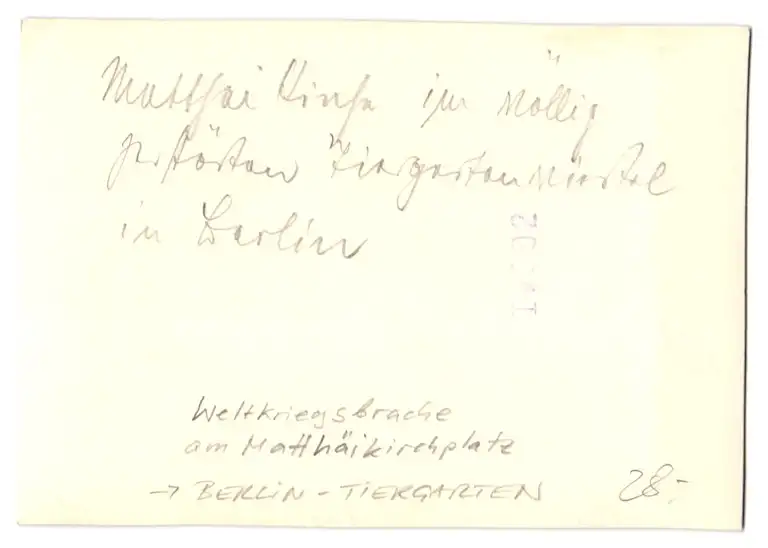 Matthäi Kirche im völlig
zerstörten Tiergartenviertel
in Berlin
Weltkriegsbrache
am Matthäikirchplatz
→ BERLIN - TIERGARTEN
28,-